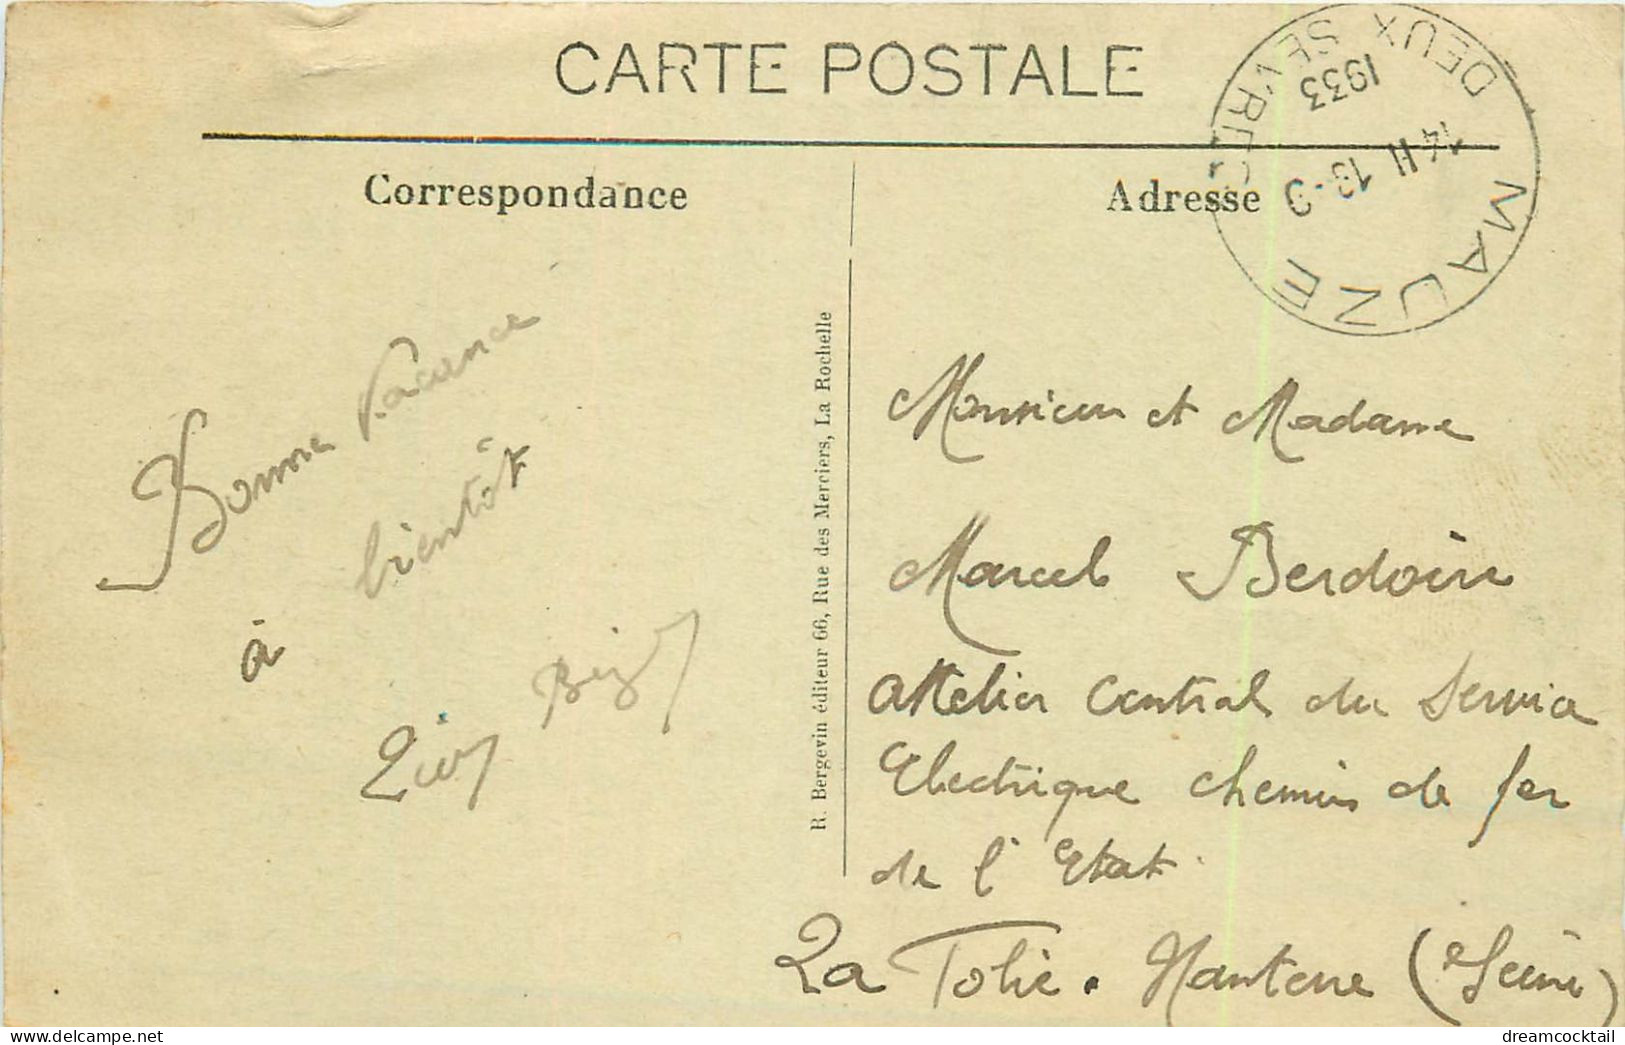 CARTE POSTALE
Correspondance
Adresse
MAUZE
DEUX SEVRES
14 H 13-9
1933
Bonne Vacance
à bientôt
R. Bergevin éditeur 66, Rue des Merciers, La Rochelle
Monsieur et Madame
Marcel Berdoin
Attelier Central du Service
Electrique chemin de fer
de l'Etat.
La Folie. Nanterre (Seine)
dreamcocktail